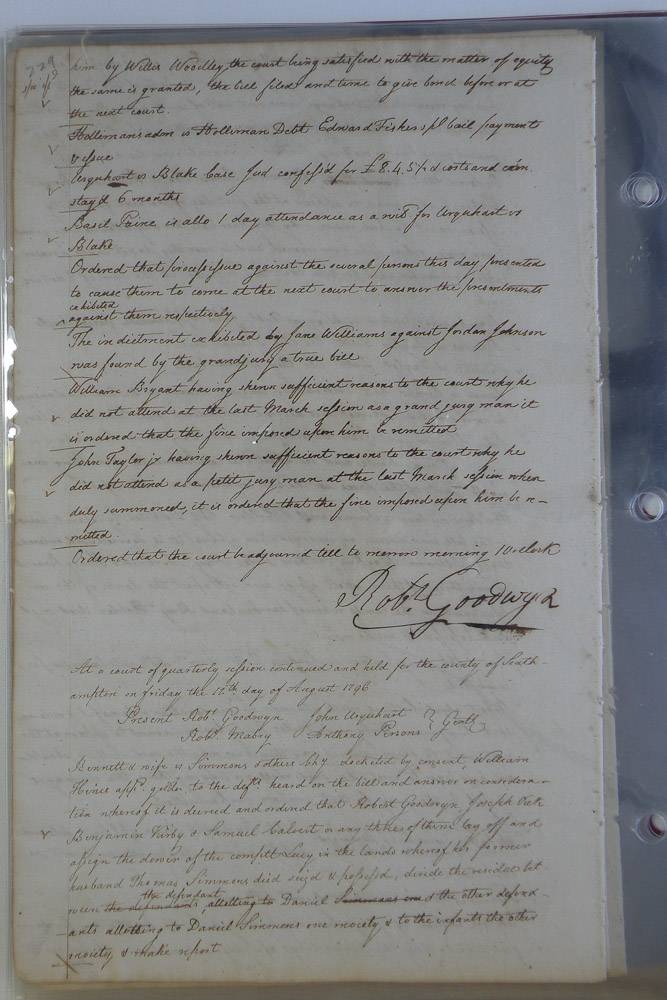 229
him by Willis Woodley, the court being satisfied with the matter of equity
the same is granted, the bill filed and time to give bond before or at
the next court.
Hollimans adm vs Holliman Debt Edward Fishers spl bail payment
& issue
Urquhart vs Blake Case Jud confess'd for £8.4.5½ & costs and exn
stay'd 6 months
Basil Paine is allo 1 day attendance as a witS for Urquhart vs
Blake
Ordered that process issue against the several persons this day presented
to cause them to come at the next court to answer the presentments
exhibited
^ against them respectively
The indictment exhibited by Jane Williams against Jordan Johnson
was found by the grand jury a true bill
William Bryant having shewn sufficient reasons to the court why he
did not attend at the last March session as a grand jury man it
is ordered that the fine imposed upon him be remitted
John Taylor jr having shewn sufficient reasons to the court why he
did not attend as a petit jury man at the last March session when
duly summoned, it is ordered that the fine imposed upon him be re-
mitted.
Ordered that the court be adjournd till to morrow morning 10 oclock
Robt. Goodwyn
At a court of quarterly session continued and held for the county of South-
ampton on friday the 12th day of August 1796
Present Robt Goodwyn John Urquhart } Gentl
Robt Mabry Anthony Persons
Bennett & wife vs Simmons & others Chy docketed by consent, William
Hines appd gdn to the defts heard on the bill and answer on considera-
tion whereof it is decreed and ordered that Robert Goodwyn Joseph
Benjamin Kirby & Samuel Calvert or any three of them lay off and
assign the dower of the complt Lucy in the lands whereof her former
husband Thomas Simmons died seiz'd & possess'd, divide the residue bet
the defendant
ween the defendants, allotting to Daniel Simmons one & the other defend-
ants allotting to Daniel Simmons one moiety & to the infants the other
moiety, & make report